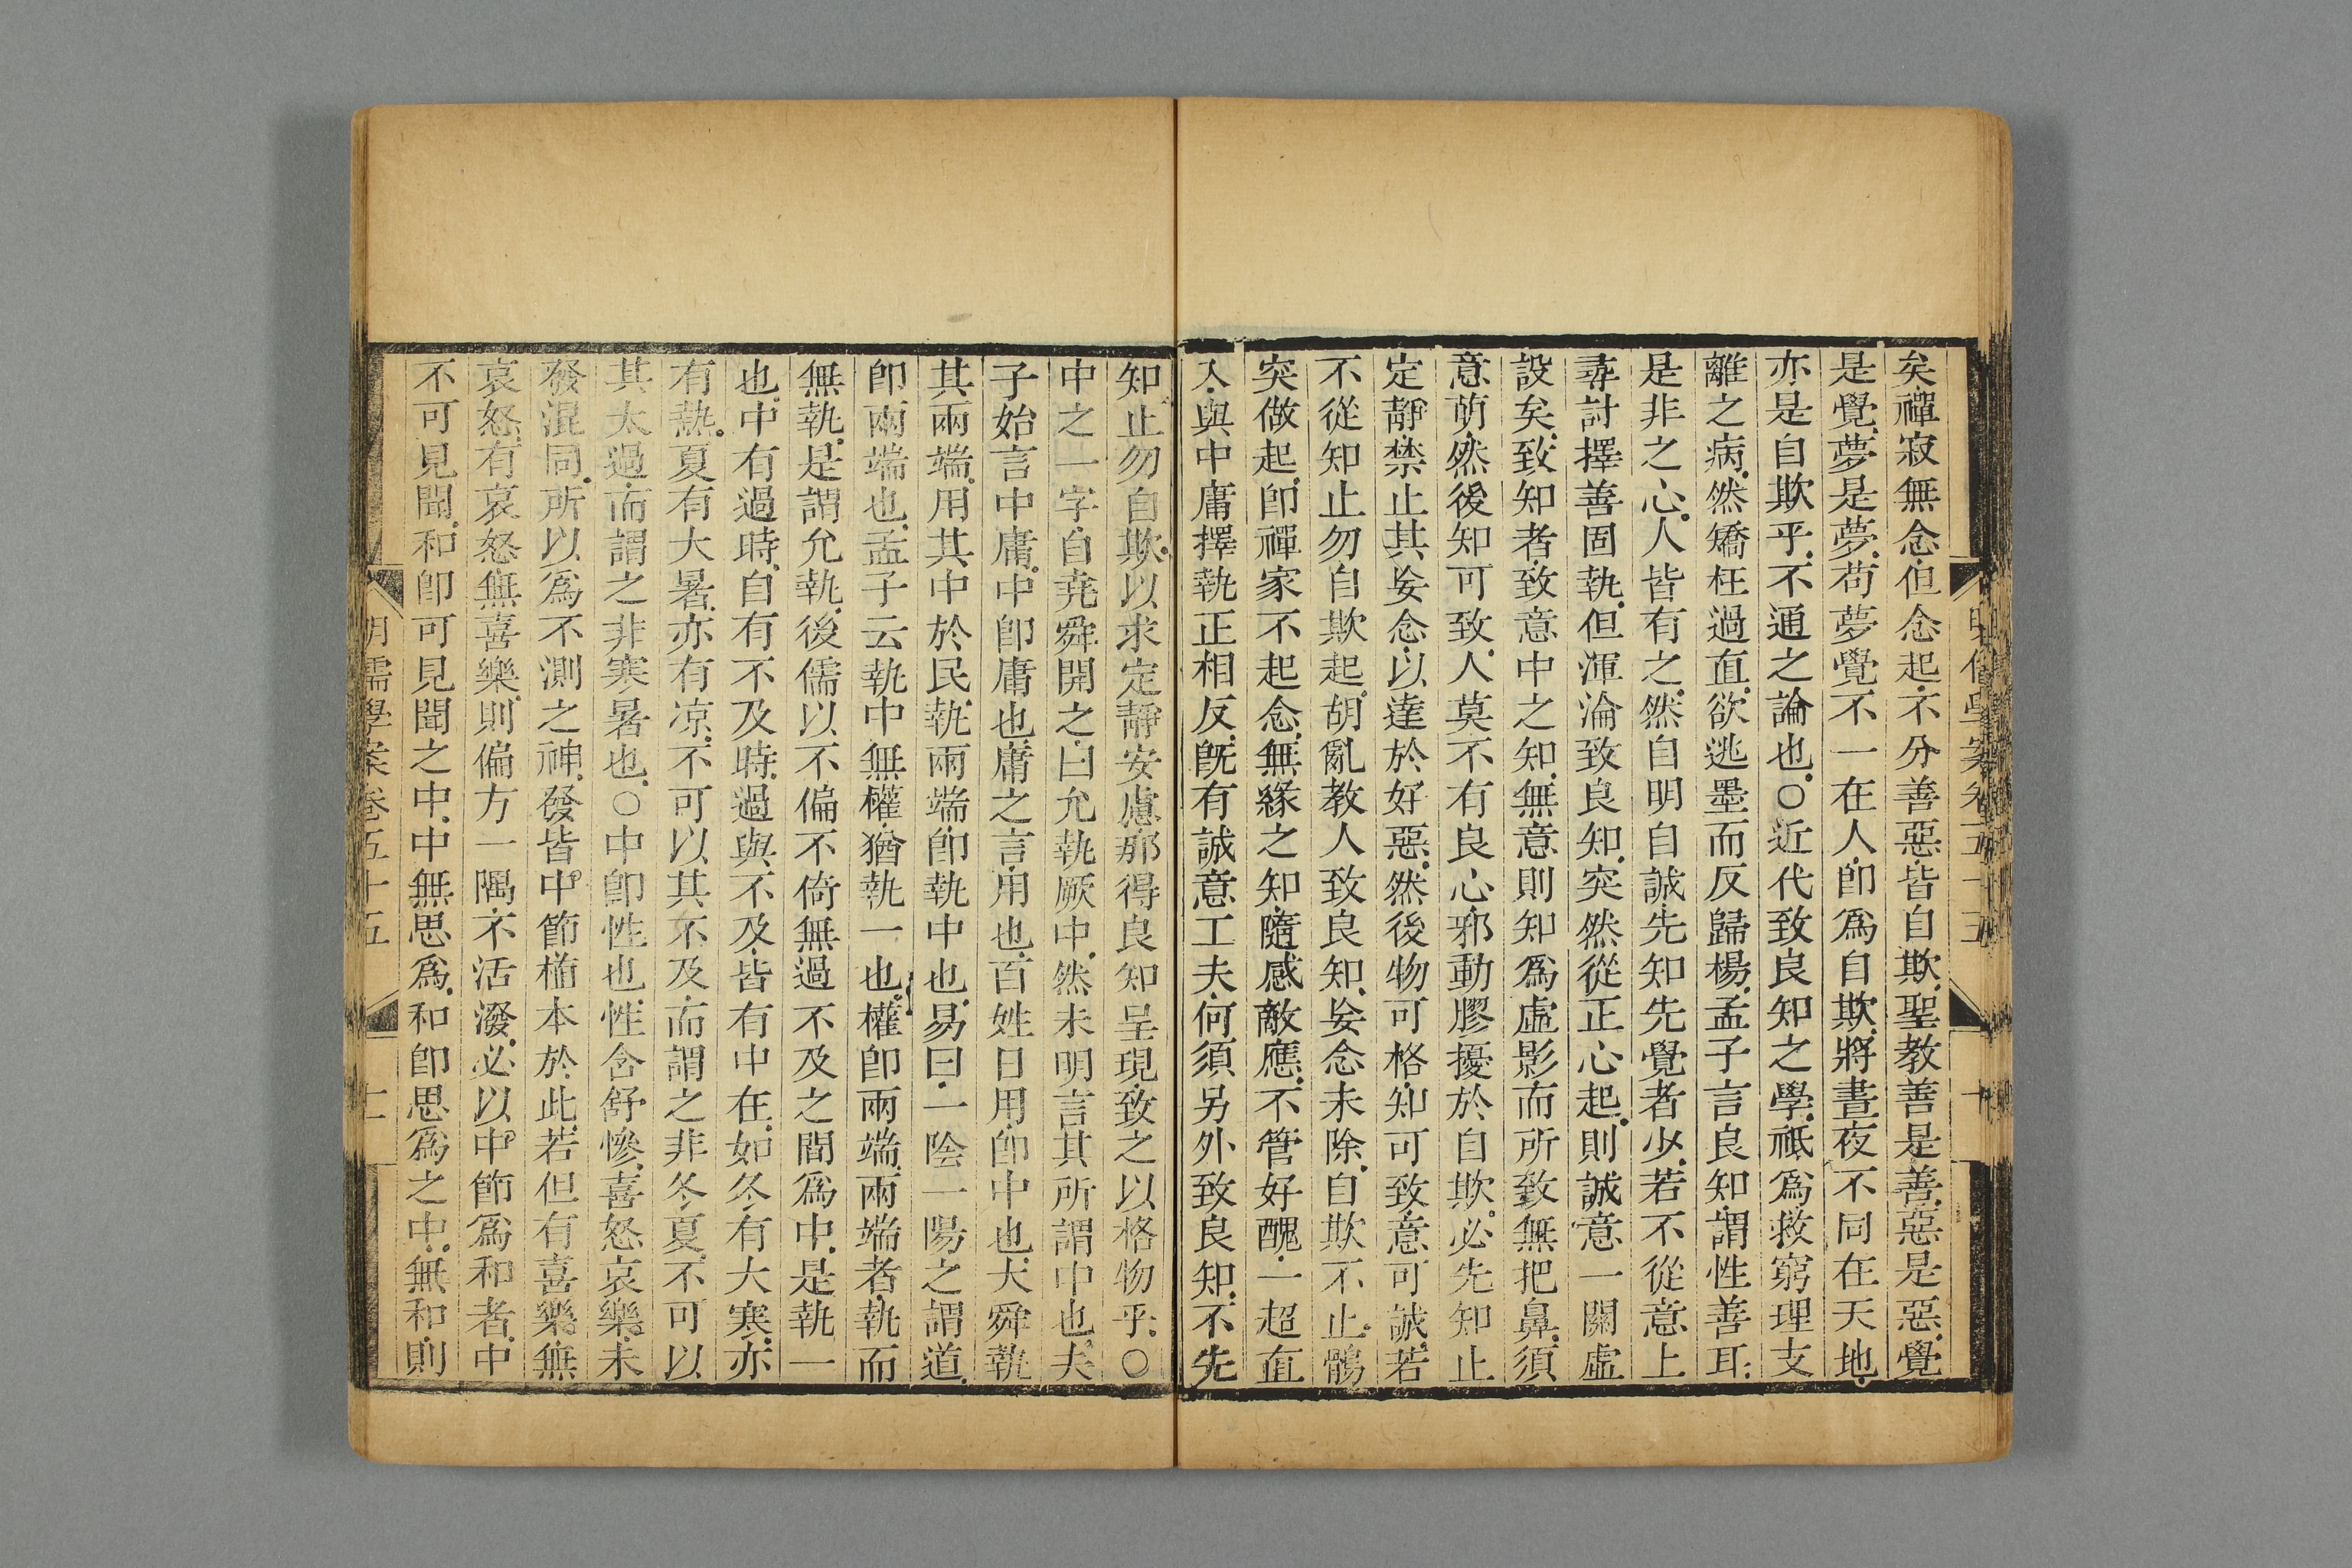 矣禪寂無念但念起不分善惡皆自欺聖教善是善惡是惡覺
是覺夢是夢苟夢覺不一在人卽爲自欺將晝夜不同在天地
亦是自欺乎不通之論也○近代致良知之學祗爲救窮理支
離之病然矯枉過直欲逃墨而反歸楊孟子言良知謂性善耳
是非之心人皆有之然自明自誠先知先覺者少若不從意上
尋討擇善固執但渾淪致良知突然從正心起則誠意一關虛
設矣致知者致意中之知無意則知爲虛影而所致無把鼻須
意萌然後知可致人莫不有良心邪動膠擾於自欺必先知止
定靜禁止其妄念以達於好惡然後物可格知可致意可誠若
不從知止勿自欺起胡亂教人致良知妄念未除自欺不止鶻
突做起卽禪家不起念無緣之知隨感敵應不管好醜一超直
入與中庸擇執正相反旣有誠意工夫何須另外致良知不先
知止勿自欺以求定靜安慮那得良知呈現致之以格物乎○
中之一字自堯舜開之曰允執厥中然未明言其所謂中也夫
子始言中庸中卽庸也庸之言用也百姓日用卽中也大舜執
其兩端用其中於民執兩端卽執中也易曰一陰一陽之謂道
卽兩端也孟子云執中無權猶執一也權卽兩端兩端者執而
無執是謂允執後儒以不偏不倚無過不及之間爲中是執一
也中有過時自有不及時過與不及皆有中在如冬有大寒亦
有熱夏有大暑亦有凉不可以其不及而謂之非冬夏不可以
其太過而謂之非寒暑也○中卽性也性含舒慘喜怒哀樂未
發混同所以爲不測之神發皆中節植本於此若但有喜樂無
哀怒有哀怒無喜樂則偏方一隅不活潑必以中節爲和者中
不可見聞和卽可見聞之中中無思爲和卽思爲之中無和則
明儒學案卷五十五